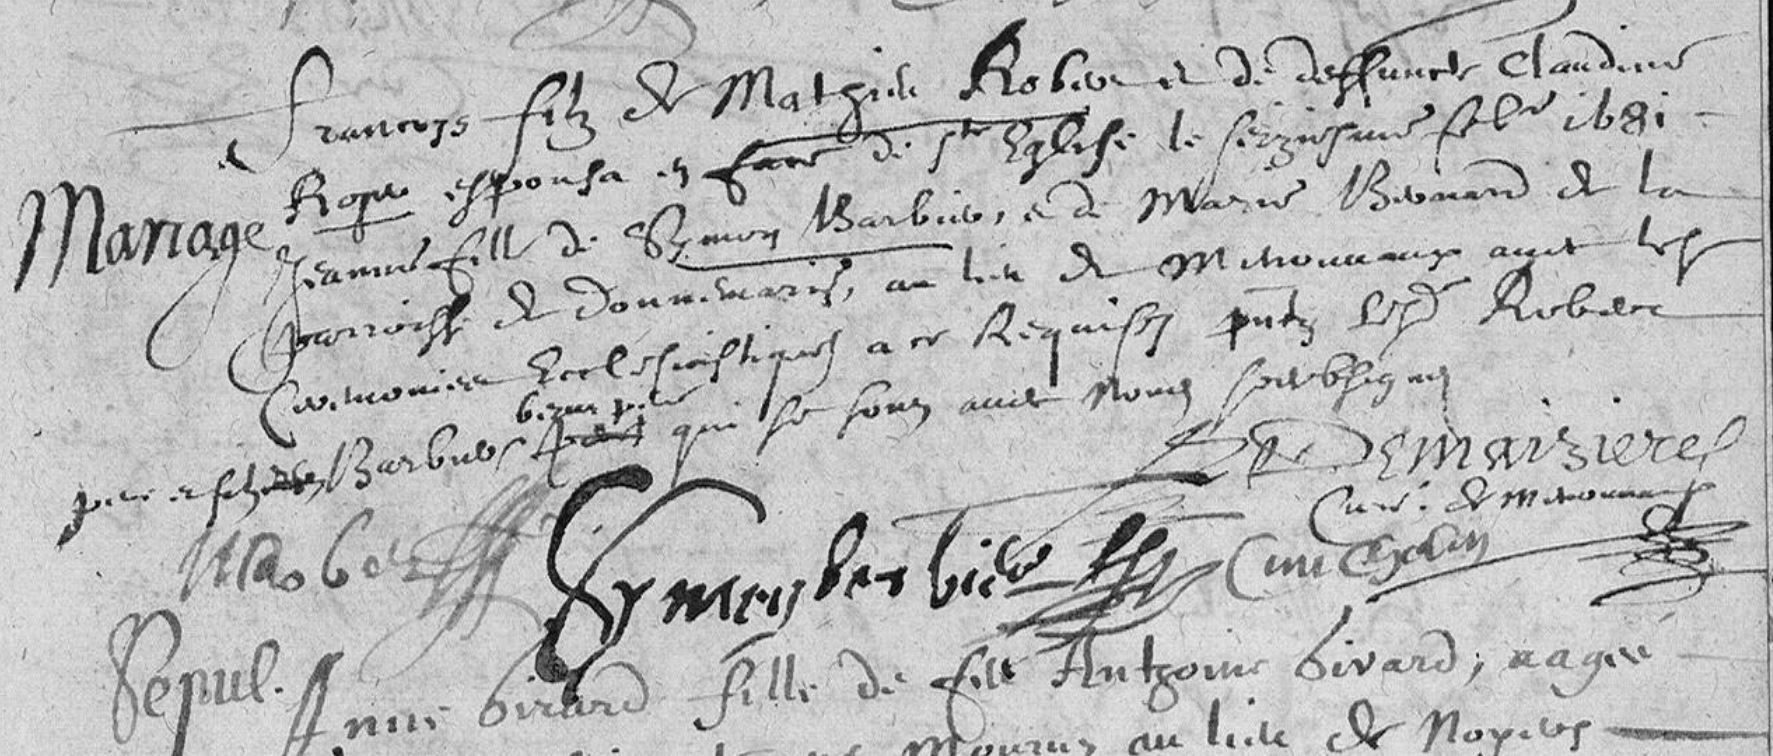 francoys filz de Mathieu Robert et de deffuncte Claudine
Mariage
Roger espousa en face de ste Eglise le seiziesme feb.er 1681
Jeanne fille de Symon Barbier, e de Marie Bernard de la
parroisse de donnemarie, au lieu de Menonnaux avec les
Ceremonies Ecclesiastiques a ce Requises pntz lesd Robert
beau pere
pere e filz Barbier qui se sont avec Nous soubsigne
Demaizieres
Curé de Menonnaux
Robert Symon barbier
Sepul. Anne Girard fille de feu Anthoine Girard, aagee
au lieu de Noyers